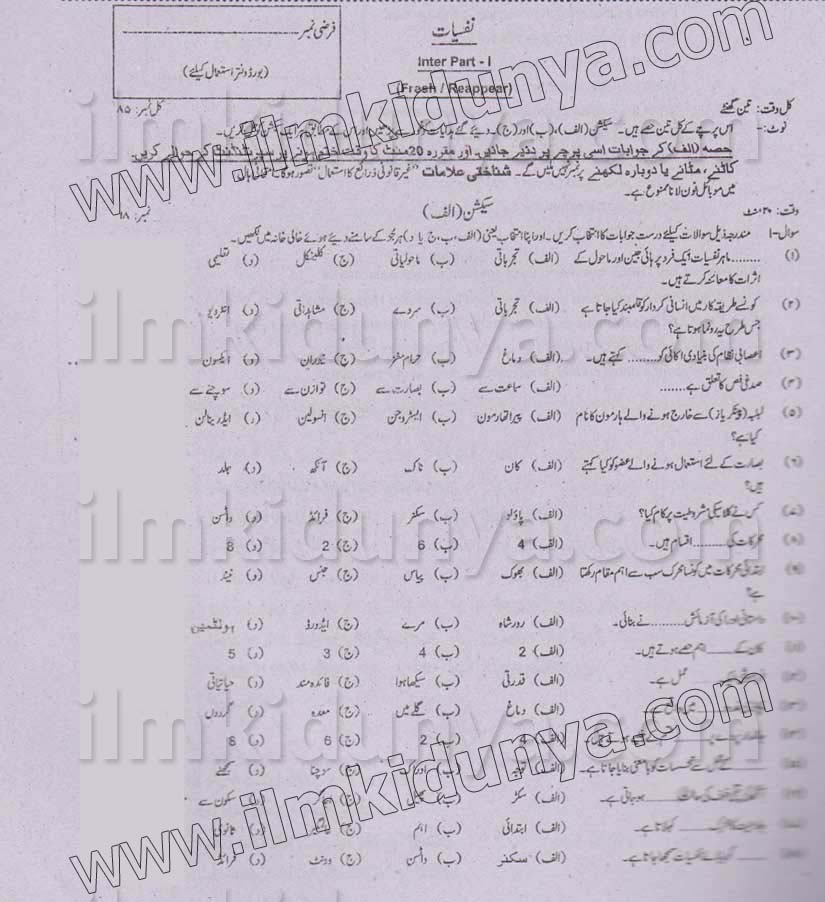 نفسیات
Inter Part - I
(Fresh / Reappear)
فرضی نمبر
(بورڈ دفتر استعمال کیلئے)
کل وقت: تین گھنٹے
کل نمبر: ۸۵
نوٹ:- اس پرچے کے کل تین حصے ہیں۔ سیکشن (الف)، (ب) اور (ج)۔ دیئے گئے
حصہ (الف) کے جوابات اسی پرچے پر دئیے جائیں۔ اور مقررہ 20 منٹ کا وقت
کاٹنے، مٹانے یا دوبارہ لکھنے پر نمبر نہیں ملیں گے۔ شناختی علامات "غیر قانونی ذرائع کا استعمال" تصور ہوگا۔ امتحانی ہال
میں موبائل فون لانا ممنوع ہے۔
وقت: ۲۰ منٹ
سیکشن (الف)
نمبر: ۱۸
سوال-I مندرجہ ذیل سوالات کیلئے درست جوابات کا انتخاب کریں۔ اور اپنا انتخاب یعنی (الف، ب، ج یا د) ہر جُز کے سامنے دیئے ہوئے خالی خانہ میں لکھیں۔
(۱) ........ ماہر نفسیات ایک فرد پر ہائی جین اور ماحول کے (الف) تجرباتی (ب) ماحولیاتی (ج) کلینیکل (د) تعلیمی
اثرات کا معائنہ کرتے ہیں۔
(۲) کونسے طریقہ کار میں انسانی کردار کو قلمبند کیا جاتا ہے (الف) تجرباتی (ب) سروے (ج) مشاہداتی (د) انٹرویو
جس طرح یہ رونما ہوتا ہے؟
(۳) اعصابی نظام کی بنیادی اکائی کو ........ کہتے ہیں۔ (الف) دماغ (ب) حرام مغز (ج) نیوران (د) ایکسون
(۴) صدفی نص کا تعلق ہے ........ (الف) سماعت سے (ب) بصارت سے (ج) توازن سے (د) سوچنے سے
(۵) لبلبہ (پینکریاز) سے خارج ہونے والے ہارمون کا نام (الف) پیراتھارمون (ب) ایسٹروجن (ج) انسولین (د) ایڈرینالن
کیا ہے؟
(۶) بصارت کے لئے استعمال ہونے والے عضو کو کیا کہتے (الف) کان (ب) ناک (ج) آنکھ (د) جلد
ہیں؟
(۷) کس نے کلاسیکی مشروطیت پر کام کیا؟ (الف) پاولو (ب) سکنر (ج) فرائڈ (د) واٹسن
(۸) محرکات کی ........ اقسام ہیں۔ (الف) 4 (ب) 6 (ج) 2 (د) 8
(۹) ابتدائی محرکات میں کونسا محرک سب سے اہم مقام رکھتا (الف) بھوک (ب) پیاس (ج) جنس (د) نیند
ہے؟
(۱۰) داستانی ادراکی آزمائش ........ نے بنائی۔ (الف) رورشاہ (ب) مرے (ج) ایڈورڈ (د) ہونٹمین
(۱۱) کان کے ........ اہم حصے ہوتے ہیں۔ (الف) 2 (ب) 4 (ج) 3 (د) 5
عمل ہے۔ (الف) قدرتی (ب) سیکھا ہوا (ج) فائدہ مند (د) حیاتیاتی
(الف) دماغ (ب) گلے میں (ج) معدہ (د) گردوں
(الف) 4 (ب) 2 (ج) 6 (د) 8
........ کے عمل سے تحسسات کو بامعنی بنایا جاتا ہے۔ (الف) توجہ (ب) ادراک (ج) سوچنا (د)
ہو جاتی ہے۔ (الف) سکڑ (ب) پھیل (ج) (د) سکون سے
کہلاتا ہے۔ (الف) ابتدائی (ب) اہم (ج) (د) ثانوی
نفسیات سمجھا جاتا ہے۔ (الف) سکنر (ب) واٹسن (ج) وونٹ (د) فرائڈ
www.ilmkidunya.com
ilmkidunya.com
ilmkidunya.com
ilmkidunya.com
ilmkidunya.com
www.ilmkidunya.com